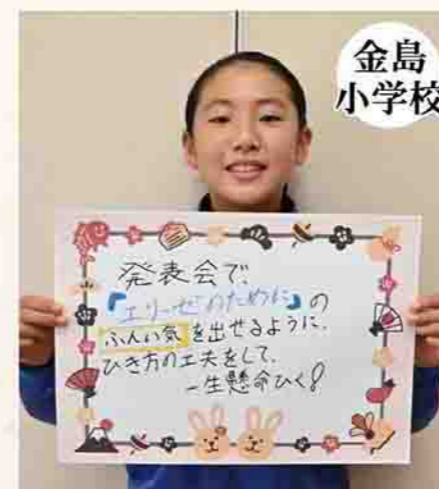 金島
小学校
発表会で、
『エリーゼのために』の
ふんい気を出せるように、
ひき方の工夫をして、
一生懸命ひく!